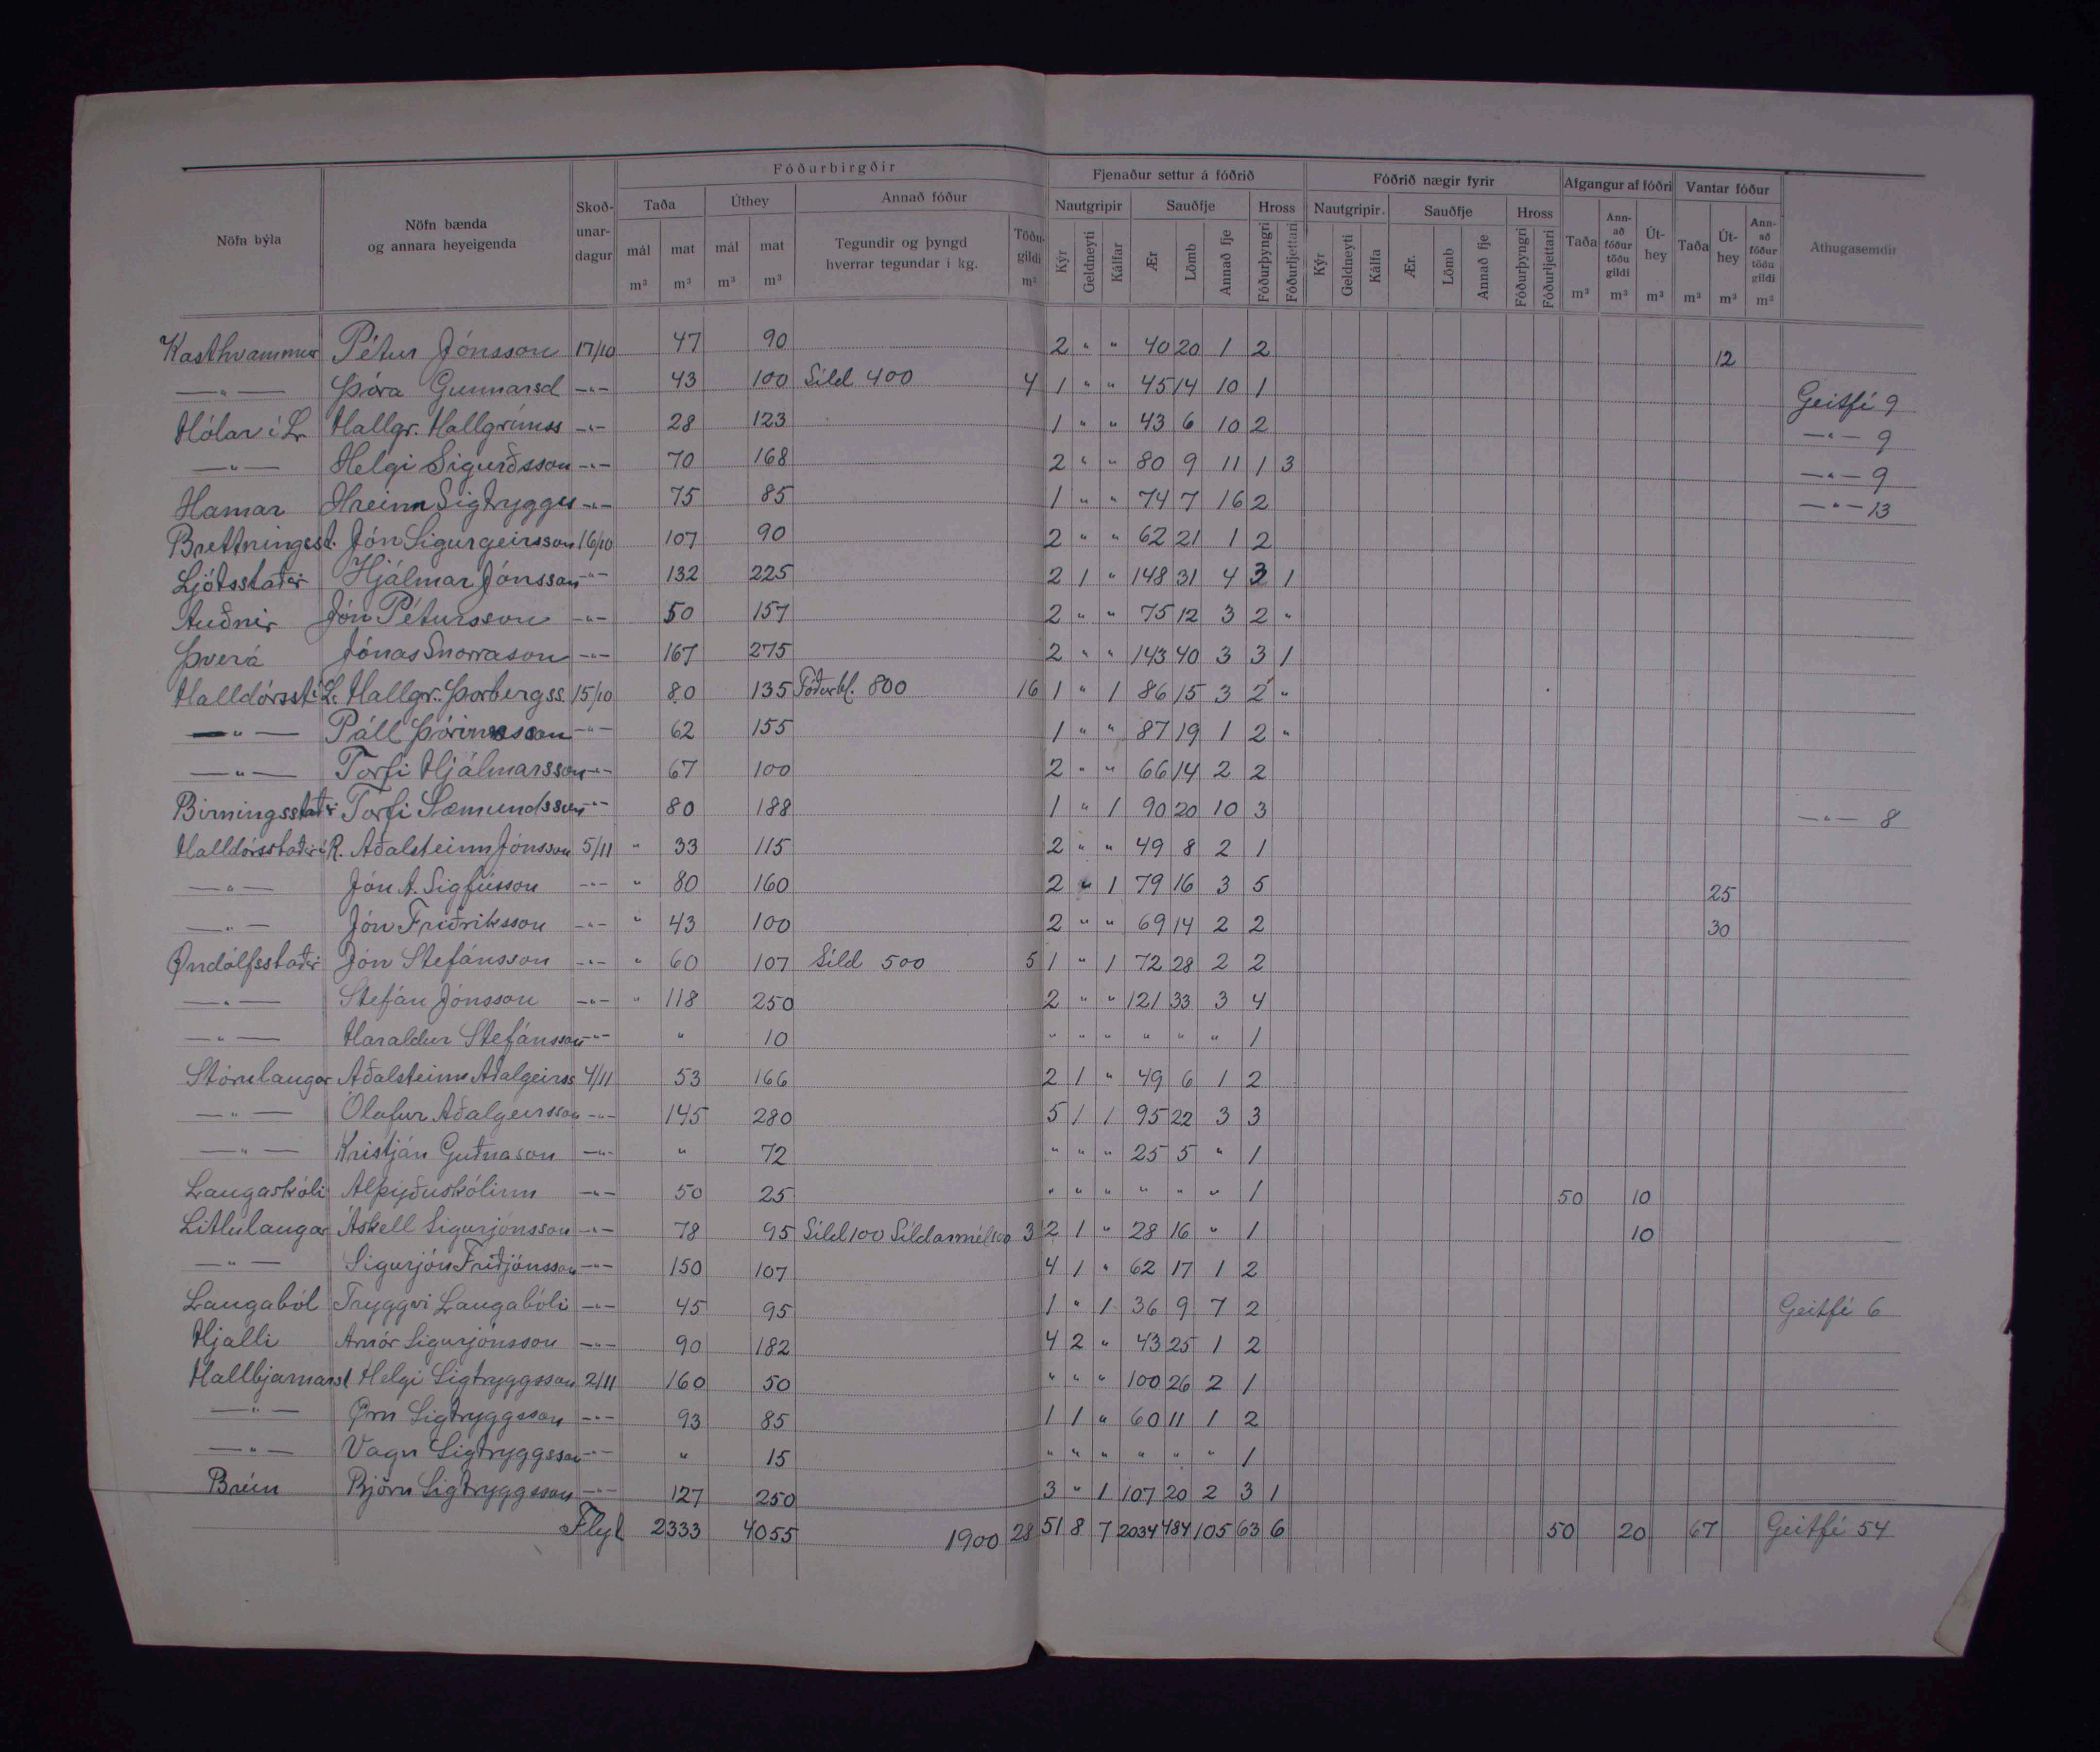 Fóðurbirgðir
Fjenaður settur á fóðrið
Fóðrið nægir fyrir
Afgangur af fóðri
Vantar fóður
Nöfn býla
Nöfn bænda og annara heyeigenda
Skoðunardagur
Taða
Úthey
Annað fóður
Nautgripir
Sauðfje
Hross
Nautgripir.
Sauðfje
Hross
Taða
Annað fóður töðu gildi
Úthey
Taða
Úthey
Annað fóður töðu gildi
Athugasemdir
mál m³ mat m³ mál m³ mat m³
Tegundir og þyngd hverrar tegundar i kg.
Töðugildi m³
Kýr Geldneyti Kálfar Ær Lömb Annað fje Fóðurþyngri Fóðurljettari
Kýr Geldneyti Kálfa Ær. Lömb Annað fje Fóðurþyngri Fóðurljettari
m³ m³ m³ m³ m³ m³
Kasthvammur Pétur Jónsson 17/10 47 90 2 " " 40 20 1 2 12
—"— Þóra Gunnarsd —"— 43 100 Síld 400 4 1 " " 45 14 10 1 Geitfé 9
Hólar í L. Hallgr. Hallgrímss —"— 28 123 1 " " 43 6 10 2 —"— 9
—"— Helgi Sigurðsson —"— 70 168 2 " " 80 9 11 1 3 —"— 9
Hamar Hreinn Sigtryggss —"— 75 85 1 " " 74 7 16 2 —"— 13
Brettningsst. Jón Sigurgeirsson 16/10 107 90 2 " " 62 21 1 2
Ljótsstaðir Hjálmar Jónsson —"— 132 225 2 1 " 148 31 4 3 1
Auðnir Jón Pétursson —"— 50 157 2 " " 75 12 3 2 "
Þverá Jónas Snorrason —"— 167 275 2 " " 143 40 3 3 1
Halldórsst. í L. Hallgr. Þorbergss. 15/10 80 135 Fóðurbl. 800 16 1 " 1 86 15 3 2 "
—"— Páll Þórinnsson —"— 62 155 1 " " 87 19 1 2 "
—"— Torfi Hjálmarsson —"— 67 100 2 " " 66 14 2 2
Birningsstaðir Torfi Sæmundsson —"— 80 188 1 " 1 90 20 10 3 —"— 8
Halldórsstaðir í R. Aðalsteinn Jónsson 5/11 " 33 115 2 " " 49 8 2 1
—"— Jón A. Sigfússon —"— " 80 160 2 " 1 79 16 3 5 25
—"— Jón Friðriksson —"— " 43 100 2 " " 69 14 2 2 30
Øndólfsstaðir Jón Stefánsson —"— " 60 107 Síld 500 5 1 " 1 72 28 2 2
—"— Stefán Jónsson —"— " 118 250 2 " " 121 33 3 4
—"— Haraldur Stefánsson —"— " 10 " " " " " " 1
Stórulaugar Aðalsteinn Aðalgeirss 4/11 53 166 2 1 " 49 6 1 2
—"— Ólafur Aðalgeirsson —"— 145 280 5 1 1 95 22 3 3
—"— Kristján Guðnason —"— " 72 " " " 25 5 " 1
Laugaskóli Alþýðuskólinn —"— 50 25 " " " " " " 1 50 10
Litlulaugar Áskell Sigurjónsson —"— 78 95 Síld 100 Síldarmél 100 3 2 1 " 28 16 " 1 10
—"— Sigurjón Friðjónsson —"— 150 107 4 1 " 62 17 1 2
Laugaból Tryggvi Laugabóli —"— 45 95 1 " 1 36 9 7 2 Geitfé 6
Hjalli Arnór Sigurjónsson —"— 90 182 4 2 " 43 25 1 2
Hallbjarnarst Helgi Sigtryggsson 2/11 160 50 " " " 100 26 2 1
—"— Ørn Sigtryggsson —"— 93 85 1 1 " 60 11 1 2
—"— Vagn Sigtryggsson —"— " 15 " " " " " " 1
Brún Björn Sigtryggsson —"— 127 250 3 " 1 107 20 2 3 1
Flyt 2333 4055 1900 28 51 8 7 2034 484 105 63 6 50 20 67 Geitfé 54